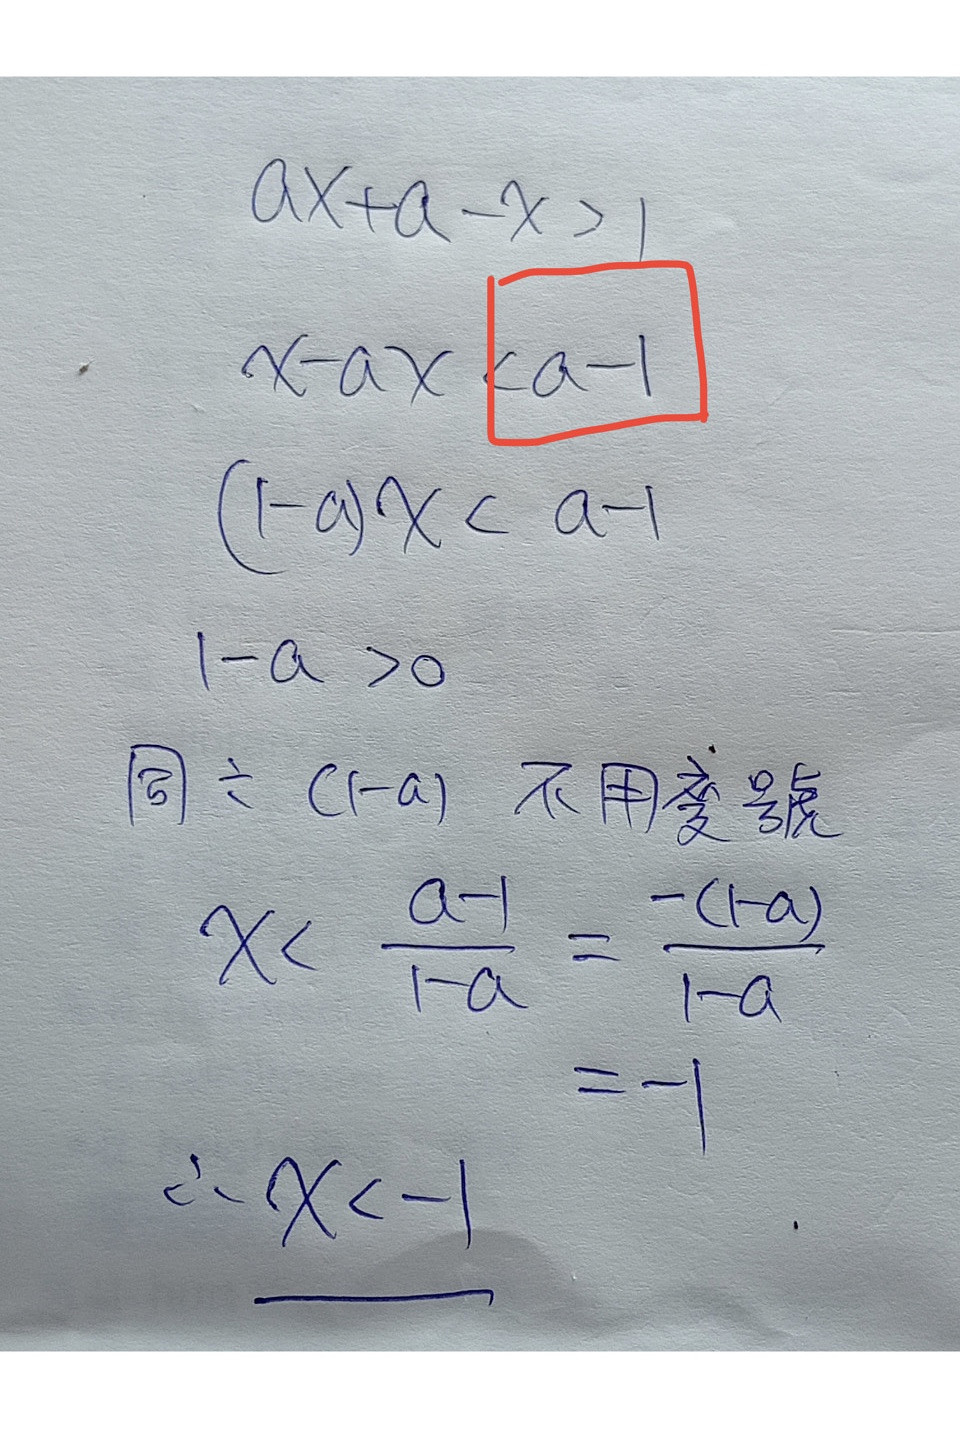 ax+a-x>1
x-ax<a-1
(1-a)x< a-1
1-a >0
同÷(1-a) 不用變號
x< \frac{a-1}{1-a} = \frac{-(1-a)}{1-a}
=-1
∴ x<-1